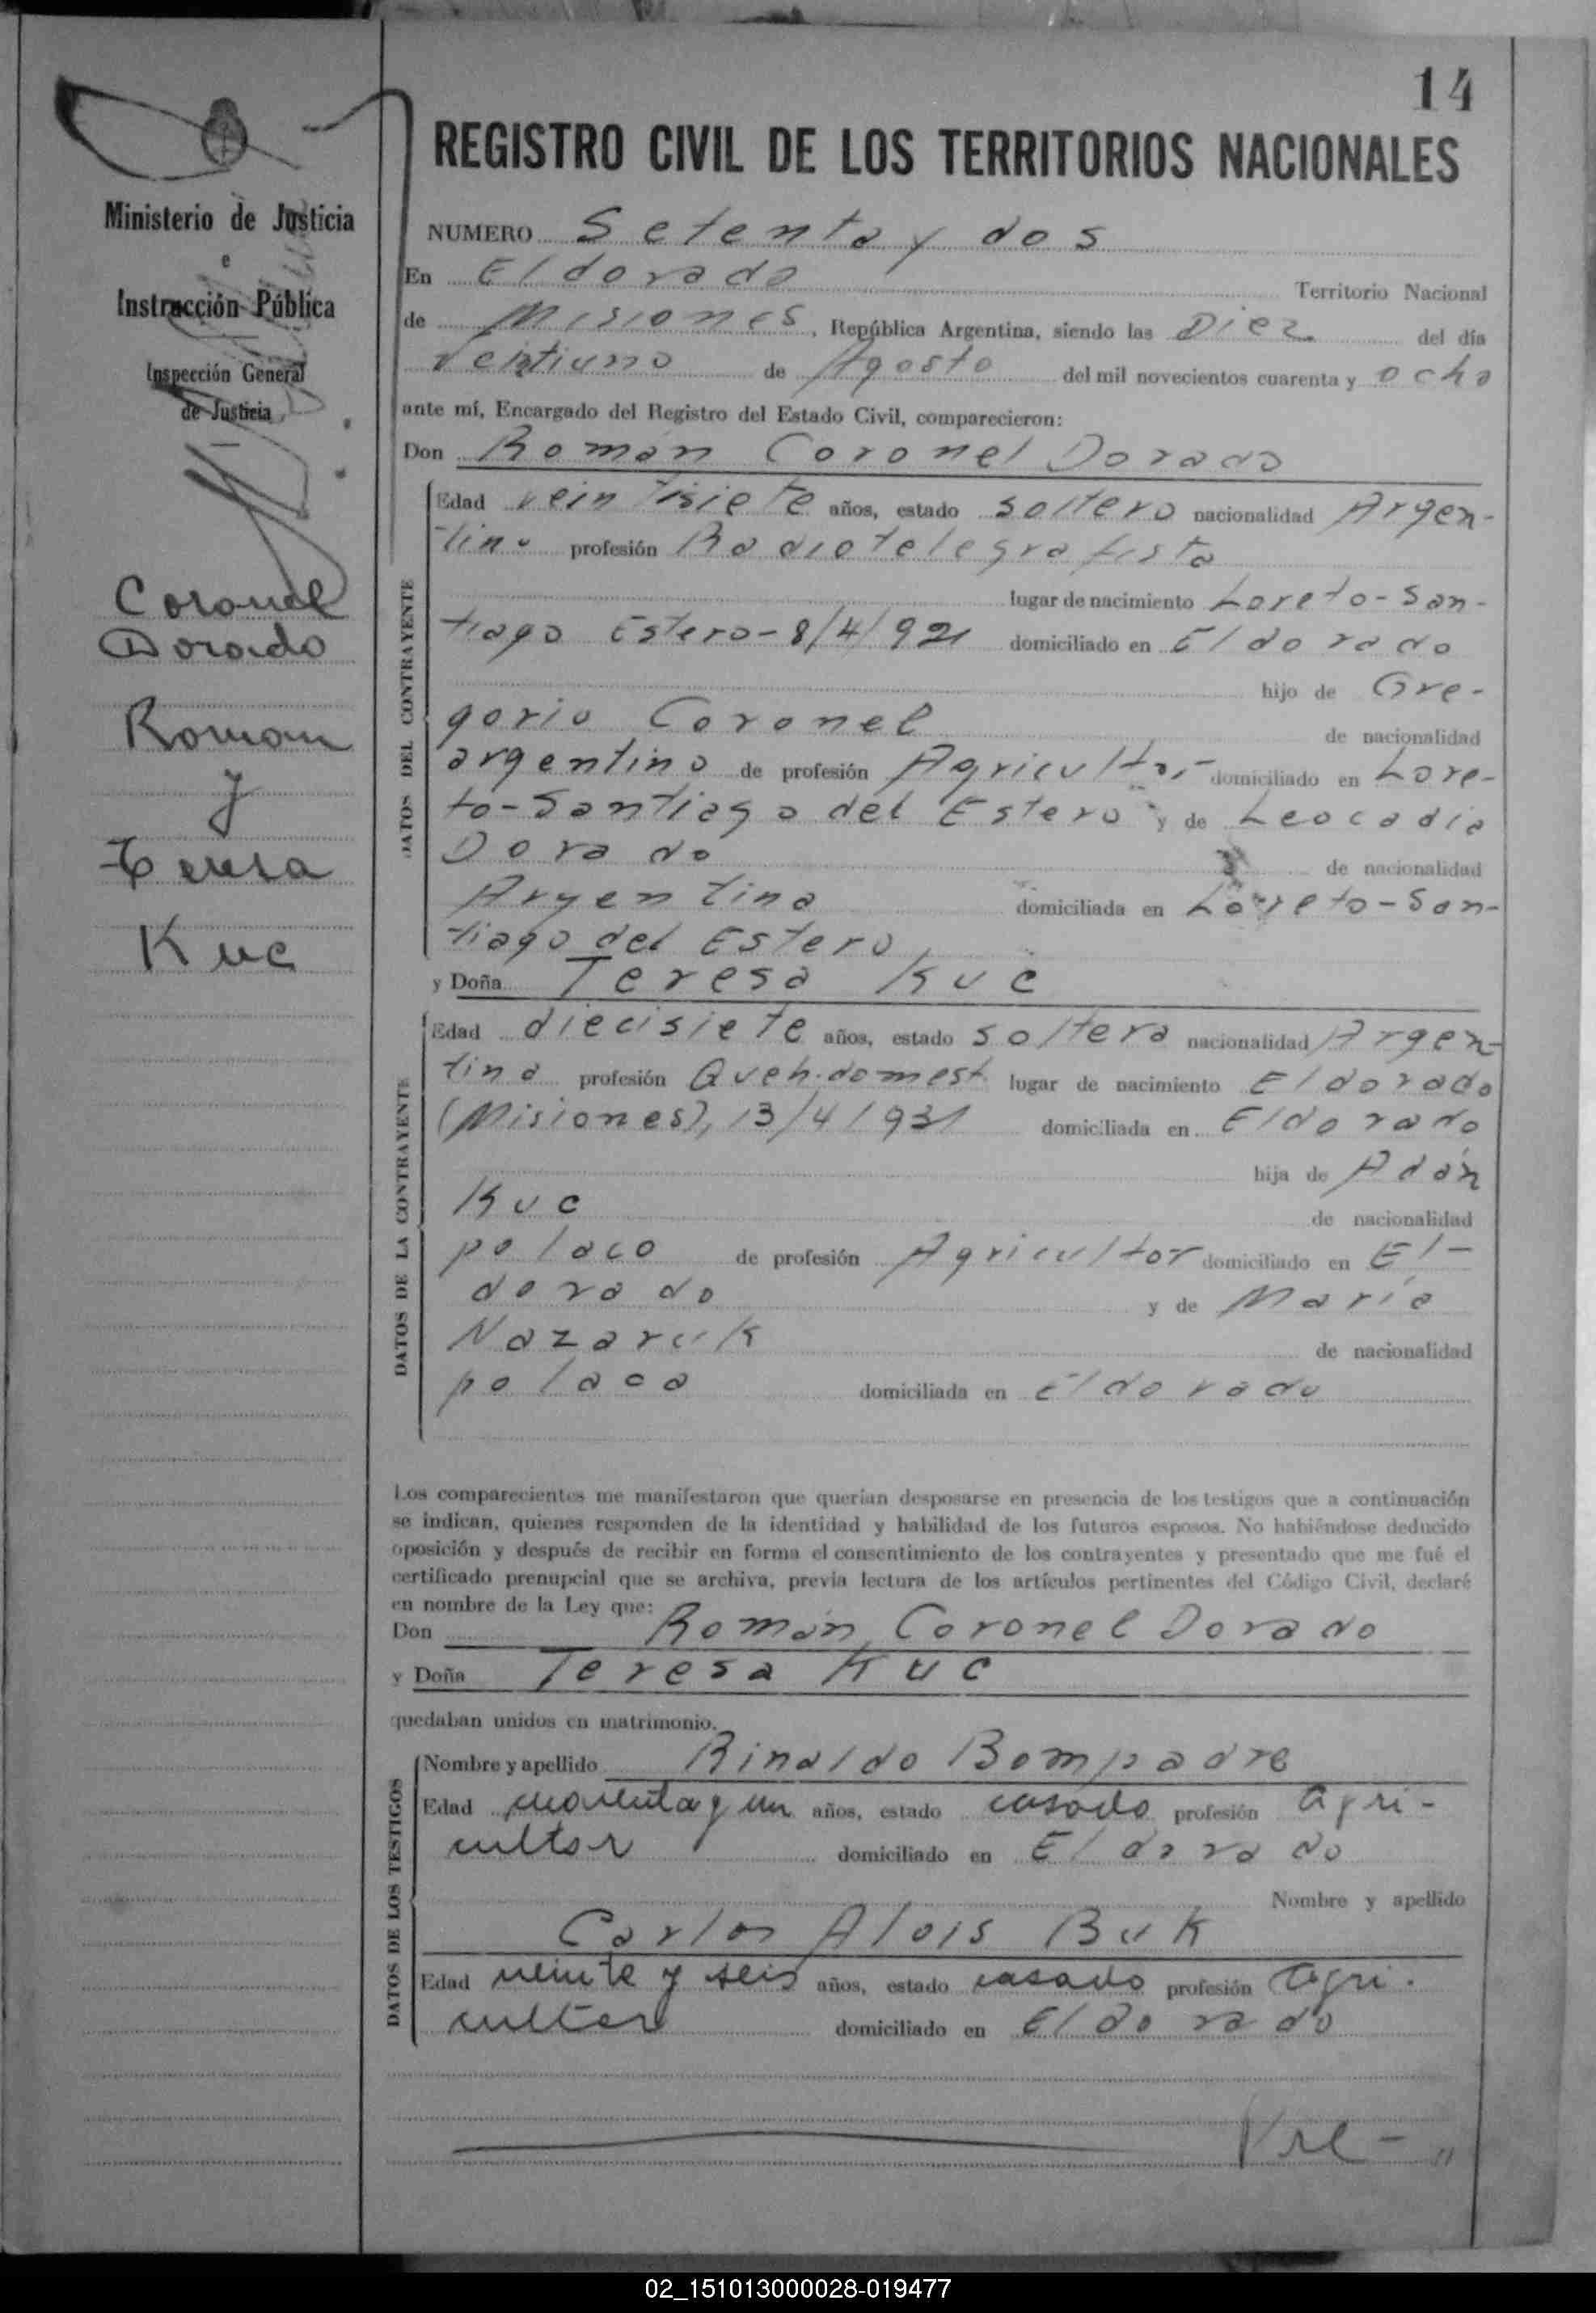 14
REGISTRO CIVIL DE LOS TERRITORIOS NACIONALES
Ministerio de Justicia
e
Instrucción Pública
Inspección General
de Justicia
Coronel
Dorado
Roman
y
Teresa
Kuc
NUMERO Setenta y dos
En Eldorado Territorio Nacional
de Misiones, República Argentina, siendo las Diez del día
veintiuno de Agosto del mil novecientos cuarenta y ocho
ante mí, Encargado del Registro del Estado Civil, comparecieron:
Don Román Coronel Dorado
DATOS DEL CONTRAYENTE
Edad veintisiete años, estado soltero nacionalidad Argen-
tino profesión Radiotelegrafista
lugar de nacimiento Loreto-San-
tiago Estero-8/4/921 domiciliado en Eldorado
hijo de Gre-
gorio Coronel de nacionalidad
argentino de profesión Agricultor domiciliado en Lore-
to-Santiago del Estero y de Leocadia
Dorado de nacionalidad
Argentina domiciliada en Loreto-San-
tiago del Estero
y Doña Teresa Kuc
DATOS DE LA CONTRAYENTE
Edad diecisiete años, estado soltera nacionalidad Argen-
tina profesión Queh.domest. lugar de nacimiento Eldorado
(Misiones), 13/4/931 domiciliada en Eldorado
hija de Adán
Kuc de nacionalidad
polaco de profesión Agricultor domiciliado en El-
dorado y de María
Nazaruk de nacionalidad
polaca domiciliada en Eldorado
Los comparecientes me manifestaron que querían desposarse en presencia de los testigos que a continuación
se indican, quienes responden de la identidad y habilidad de los futuros esposos. No habiéndose deducido
oposición y después de recibir en forma el consentimiento de los contrayentes y presentado que me fué el
certificado prenupcial que se archiva, previa lectura de los artículos pertinentes del Código Civil, declaré
en nombre de la Ley que:
Don Román Coronel Dorado
y Doña Teresa Kuc
quedaban unidos en matrimonio.
DATOS DE LOS TESTIGOS
Nombre y apellido Rinaldo Bompadre
Edad cuarenta y un años, estado casado profesión Agri-
cultor domiciliado en Eldorado
Nombre y apellido
Carlos Alois Buk
Edad veinte y seis años, estado casado profesión Agri-
cultor domiciliado en Eldorado
02_151013000028-019477